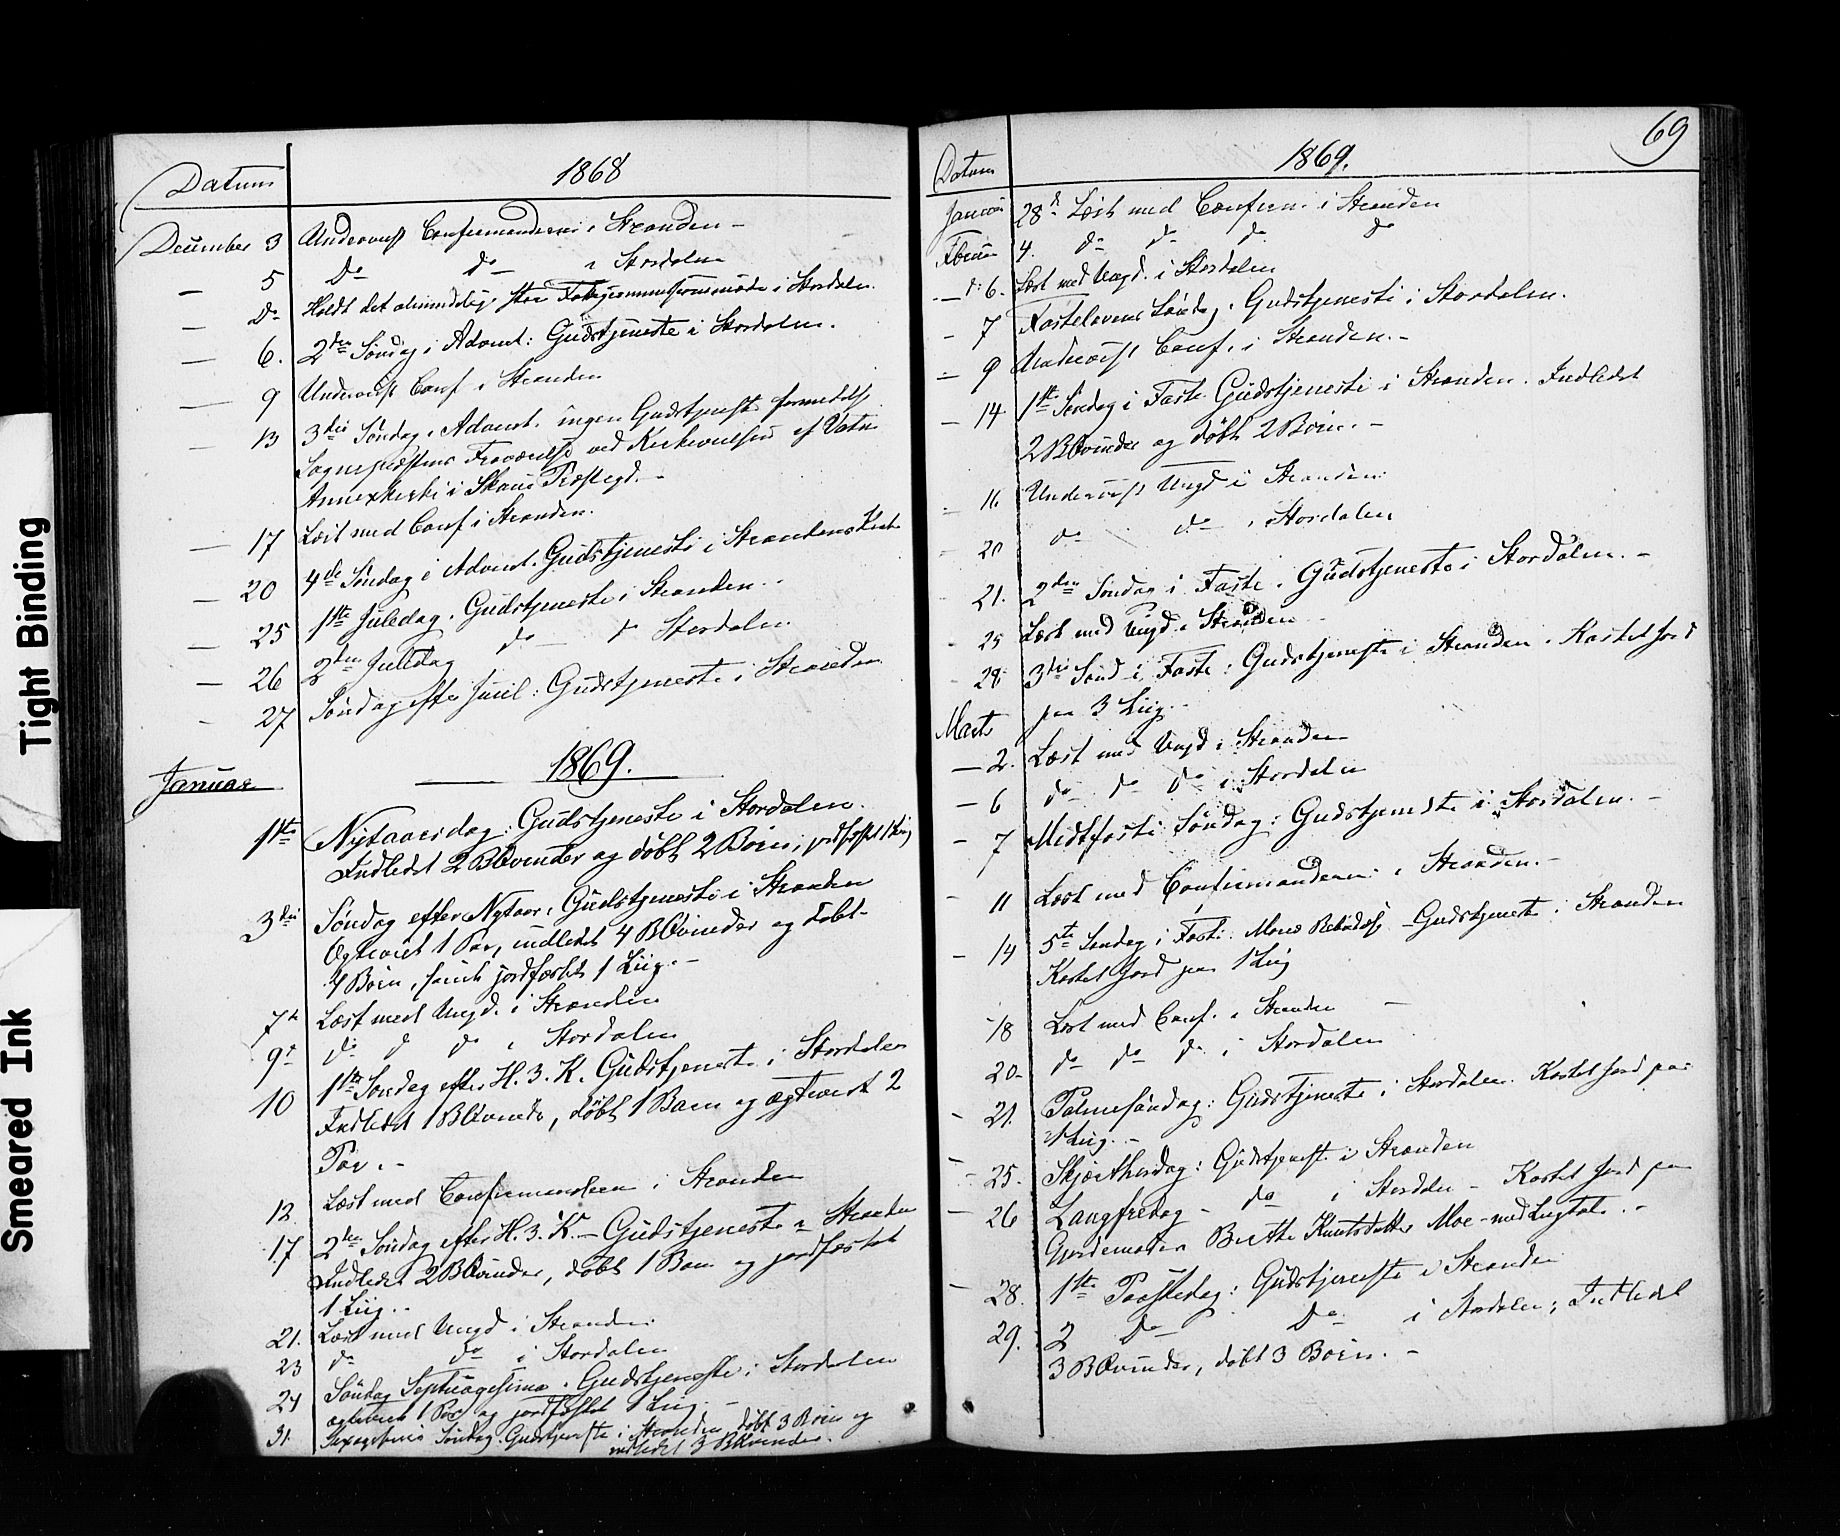 Tight Binding
Smeared Ink
Datum 1868
December 3 Underviist Confirmanderne i Stranden –
— 5 Do Do i Stordalen
— Do Holdt det almindelige Fattigcommissionsmøde i Stordalen.
— 6. 2den Søndag i Advent: Gudstjeneste i Stordalen.
— 9 Underviist Conf i Stranden
— 13 3die Søndag i Advent. ingen Gudstjeneste formedelst
Sognepræstens Fraværelse ved Kirkevielsen af Vatne
Annexkirke i Skous Præstegd. –
— 17 Læst med Conf i Stranden.
— 20 4de Søndag i Advent. Gudstjeneste i Strandens Kirke
— 25 1ste Juledag. Gudstjeneste i Stranden. -
— 26 2den Juledag do — i Stordalen
- 27 Søndag efter Juul: Gudstjeneste i Stranden
1869.
Januar
1ste Nytaarsdag: Gudstjeneste i Stordalen.
Indledet 2 BQvinder og døbt 2 Børn, jordfæstet 1 Liig
3die Søndag efter Nytaar, Gudstjeneste i Stranden
Ægteviet 1 Par, indledet 4 BQvinder og døbt
4 Børn, samt jordfæstet 1 Liig. –
7de Læst med Ungd. i Stranden
9de do do do i Stordalen
10 1ste Søndag efter H. 3. K. Gudstjeneste i Stordalen
Indledet 1 BQvinde, døbt 1 Barn og ægteviet 2
Par. –
12. Læst med Confirmanderne i Stranden
17. 2den Søndag efter H. 3. K. – Gudstjeneste i Stranden
Indledet 2 BQvinder, døbt 1 Barn og jordfæstet
1 Liig. –
21. Læst med Ungd i Stranden
23 do do i Stordalen
24 Søndag Septuagesima. Gudstjeneste i Stordalen
ægteviet 1 Par og jordfæstet 1 Liig. –
31. Sexagesima Søndag. Gudstjeneste i Stranden, døbt 3 Børn og
indledet 3 BQvinder.
69
Datum 1869.
Januar 28de Læst med Confirm. i Stranden
Februar 4. do do do do
— 6. Læst med Ungd. i Stordalen
- 7 Fastelavns Søndag: Gudstjeneste i Stordalen.
— 9 Underviist Conf. i Stranden. –
— 14 1ste Søndag i Faste Gudstjeneste i Stranden. Indledet
2 BQvinder og døbt 2 Børn. –
— 16. Underviist Ungd i Stranden
- 20 do do i Stordalen
- 21. 2den Søndag i Faste. Gudstjeneste i Stordalen. –
- 25 Læst med Ungd i Stranden
- 28 3die Sønd i Faste: Gudstjeneste i Stranden. Kastet Jord
paa 3 Liig. –
Marts
— 2. Læst med Ungd i Stranden
— 6 do do do i Stordalen
— 7 Midtfaste Søndag: Gudstjeneste i Stordalen. –
— 11 Læst med Confirmanderne i Stranden. –
— 14 5te Søndag i Faste. Mariæ Bebudelse – Gudstjeneste i Stranden
Kastet Jord paa 1 Liig
- 18 Læst med Conf. i Stranden –
20 – do do do i Stordalen
— 21. Palmesøndag: Gudstjeneste i Stordalen. Kastet Jord paa
1 Liig. –
— 25. Skjærthorsdag: Gudstjeneste i Stranden
— 26 Langfredag – do i Stordalen – Kastet Jord paa
Gjordemoder Berthe Knutsdatter Moe – med Liigtale. –
— 28. 1ste Paaskedag: Gudstjeneste i Stranden
29. 2 Do Do i Stordalen; Indledet
3 BQvinder, døbt 3 Børn. –